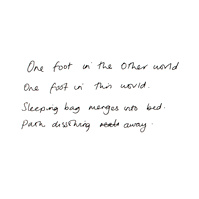 One foot in the other world
One foot in this world.
Sleeping bag merges into bed.
Pain dissolving away.